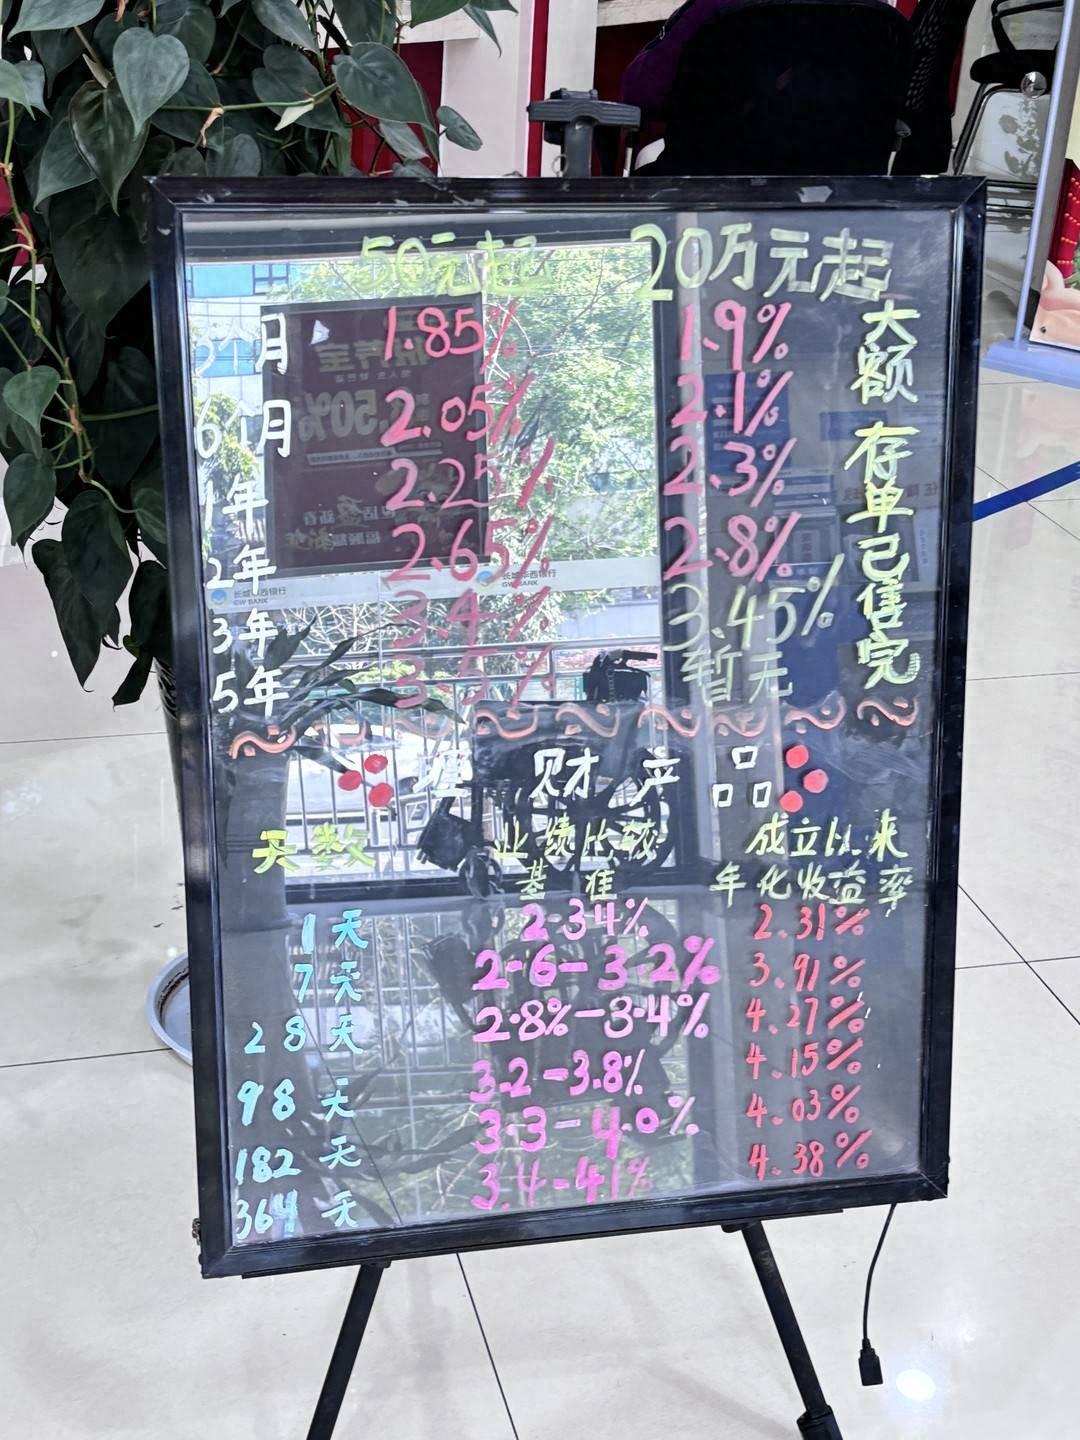 50元起 20万元起
3个月 1.85% 1.9%
6个月 2.05% 2.1%
1年 2.25% 2.3%
2年 2.65% 2.8%
3年 3.4% 3.45%
5年 3.5% 暂无
大额存单已售完
理财产品
天数 业绩比较基准 成立以来年化收益率
1天 2.34% 2.31%
7天 2.6-3.2% 3.91%
28天 2.8%-3.4% 4.27%
98天 3.2-3.8% 4.15%
182天 3.3-4.0% 4.03%
364天 3.4-4.1% 4.38%
长城华西银行
GW BANK
长城华西银行
GW BANK